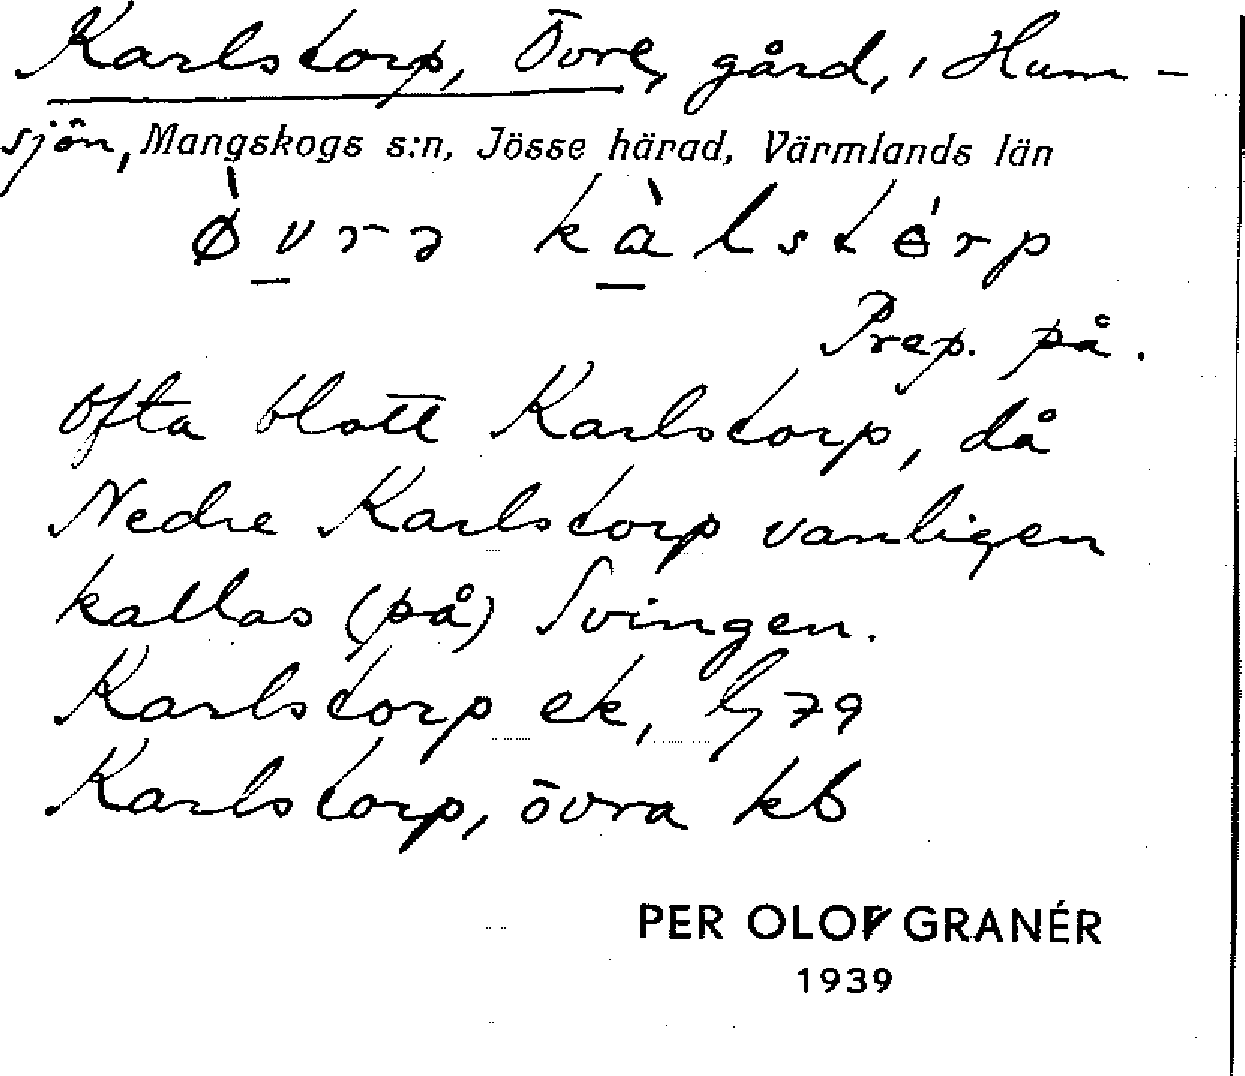 Karlstorp, Övre, gård, i Hum-
sjön, Mangskogs s:n, Jösse härad, Värmlands län
Prep. på.
Ofta blott Karlstorp, då
Nedre Karlstorp vanligen
kallas (på) Svingen.
Karlstorp ek, G 79
Karlstorp, övra kb
PER OLOF GRANÉR
1939